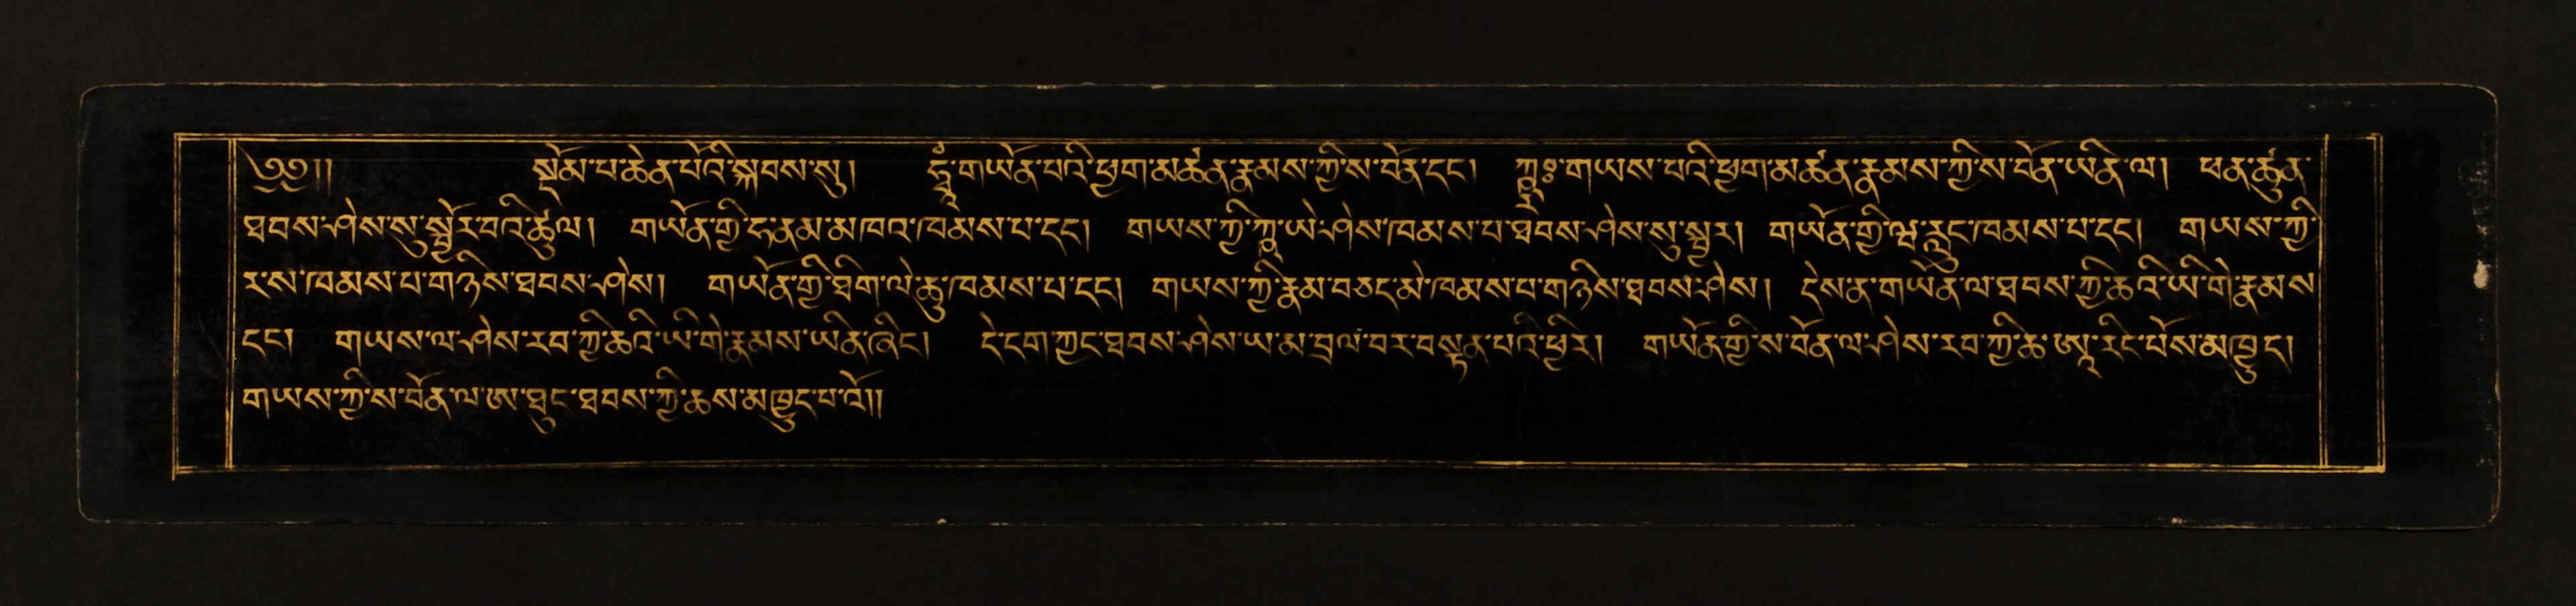 ༄༅།། སྡོམ་པ་ཆེན་པོའི་སྐབས་སུ། ཧཱུྃ་གཡོན་པའི་ཕྱག་མཚན་རྣམས་ཀྱི་ས་བོན་དང། གཡས་པའི་ཕྱག་མཚན་རྣམས་ཀྱི་ས་བོན་ཡིན་ལ། ཕན་ཚུན་
ཐབས་ཤེས་སུ་སྦྱོར་བའི་ཚུལ། གཡོན་གྱི་ཧ་ནམ་མཁའ་ཁམས་པ་དང། གཡས་ཀྱི་ཀཱ་ཡེ་ཤེས་ཁམས་པ་ཐབས་ཤེས་སུ་སྦྱར། གཡོན་གྱི་ལྷ་རླུང་ཁམས་པ་དང། གཡས་ཀྱི་
ར་ས་ཁམས་པ་གཉིས་ཐབས་ཤེས། གཡོན་གྱི་ཐིག་ལེ་ཆུ་ཁམས་པ་དང། གཡས་ཀྱི་རྣམ་བཅད་མེ་ཁམས་པ་གཉིས་ཐབས་ཤེས། དེས་ན་གཡོན་ལ་ཐབས་ཀྱི་ཆའི་ཡི་གེ་རྣམས་
དང། གཡས་ལ་ཤེས་རབ་ཀྱི་ཆའི་ཡི་གེ་རྣམས་ཡིན་ཞིང། དེ་དག་ཀྱང་ཐབས་ཤེས་ཡ་མ་བྲལ་བར་བསྟན་པའི་ཕྱིར། གཡོན་གྱི་ས་བོན་ལ་ཤེས་རབ་ཀྱི་ཆ་ཨཱ་རིང་པོས་མཁྱུད།
གཡས་ཀྱི་ས་བོན་ལ་ཨ་ཐུང་ཐབས་ཀྱི་ཆས་མཁྱུད་པ་འོ།།